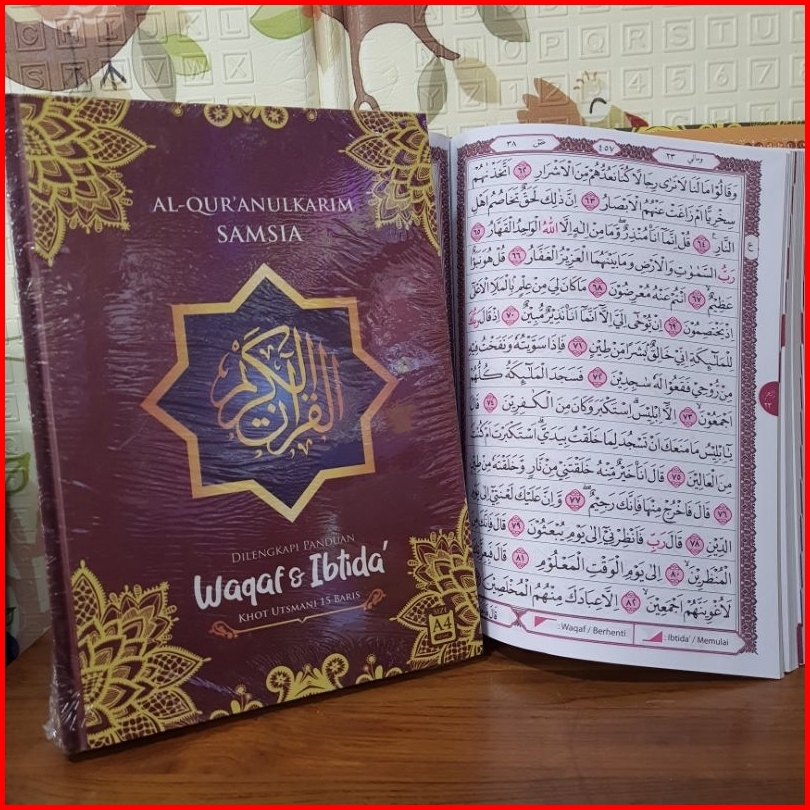 AL-QUR'ANULKARIM
SAMSIA
القرآن الكريم
DILENGKAPI PANDUAN
Waqaf & Ibtida'
KHOT UTSMANI 15 BARIS
SIZE
A4
ومالي ٢٣
٤٥٧
صٓ ٣٨
وَقَالُوْا مَا لَنَا لَا نَرٰى رِجَالًا كُنَّا نَعُدُّهُمْ مِّنَ الْاَشْرَارِ ٦٢ اَتَّخَذْنٰهُمْ
سِخْرِيًّا اَمْ زَاغَتْ عَنْهُمُ الْاَبْصَارُ ٦٣ اِنَّ ذٰلِكَ لَحَقٌّ تَخَاصُمُ اَهْلِ
النَّارِ ٦٤ قُلْ اِنَّمَآ اَنَا۠ مُنْذِرٌ وَّمَا مِنْ اِلٰهٍ اِلَّا اللّٰهُ الْوَاحِدُ الْقَهَّارُ ٦٥
رَبُّ السَّمٰوٰتِ وَالْاَرْضِ وَمَا بَيْنَهُمَا الْعَزِيْزُ الْغَفَّارُ ٦٦ قُلْ هُوَ نَبَؤٌا
عَظِيْمٌ ٦٧ اَنْتُمْ عَنْهُ مُعْرِضُوْنَ ٦٨ مَا كَانَ لِيَ مِنْ عِلْمٍ بِالْمَلَاِ الْاَعْلٰٓى
اِذْ يَخْتَصِمُوْنَ ٦٩ اِنْ يُّوْحٰٓى اِلَيَّ اِلَّآ اَنَّمَآ اَنَا۠ نَذِيْرٌ مُّبِيْنٌ ٧٠ اِذْ قَالَ رَبُّكَ
لِلْمَلٰۤىِٕكَةِ اِنِّيْ خَالِقٌۢ بَشَرًا مِّنْ طِيْنٍ ٧١ فَاِذَا سَوَّيْتُهٗ وَنَفَخْتُ فِيْهِ
مِنْ رُّوْحِيْ فَقَعُوْا لَهٗ سٰجِدِيْنَ ٧٢ فَسَجَدَ الْمَلٰۤىِٕكَةُ كُلُّهُمْ
اَجْمَعُوْنَ ٧٣ اِلَّآ اِبْلِيْسَ اِسْتَكْبَرَ وَكَانَ مِنَ الْكٰفِرِيْنَ ٧٤ قَالَ
يٰٓاِبْلِيْسُ مَا مَنَعَكَ اَنْ تَسْجُدَ لِمَا خَلَقْتُ بِيَدَيَّ اَسْتَكْبَرْتَ اَمْ كُنْتَ
مِنَ الْعَالِيْنَ ٧٥ قَالَ اَنَا۠ خَيْرٌ مِّنْهُ خَلَقْتَنِيْ مِنْ نَّارٍ وَّخَلَقْتَهٗ مِنْ طِيْنٍ
٧٦ قَالَ فَاخْرُجْ مِنْهَا فَاِنَّكَ رَجِيْمٌ ٧٧ وَّاِنَّ عَلَيْكَ لَعْنَتِيْٓ اِلٰى يَوْمِ
الدِّيْنِ ٧٨ قَالَ رَبِّ فَاَنْظِرْنِيْٓ اِلٰى يَوْمِ يُبْعَثُوْنَ ٧٩ قَالَ فَاِنَّكَ مِنَ
الْمُنْظَرِيْنَ ٨٠ اِلٰى يَوْمِ الْوَقْتِ الْمَعْلُوْمِ ٨١ قَالَ فَبِعِزَّتِكَ
لَاُغْوِيَنَّهُمْ اَجْمَعِيْنَ ٨٢ اِلَّا عِبَادَكَ مِنْهُمُ الْمُخْلَصِيْنَ
: Waqaf / Berhenti
: Ibtida' / Memulai